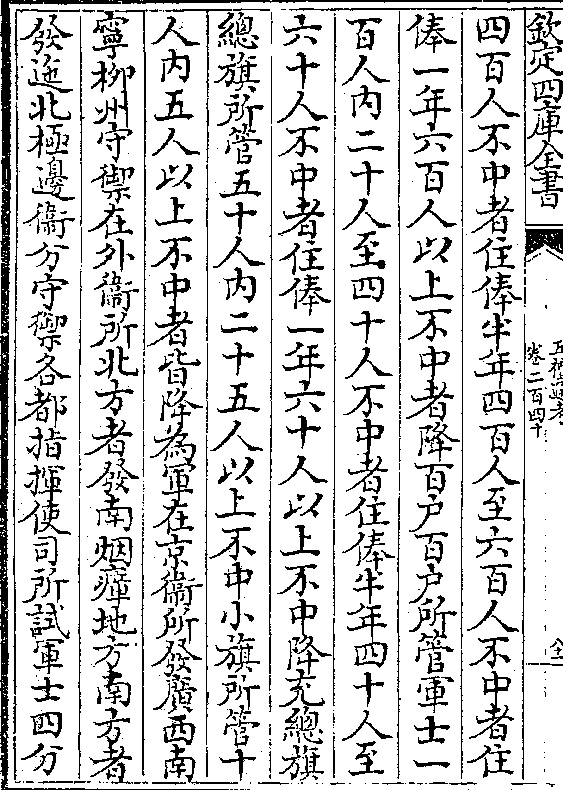 欽定四庫全書
卷二百四十
四百人不中者住俸半年四百人至六百人不中者住
俸一年六百人以上不中者降百户百户所管軍士一
百人内二十人至四十人不中者住俸半年四十人至
六十人不中者住俸一年六十人以上不中降充總旗
總旗所管五十人内二十五人以上不中小旗所管十
人内五人以上不中者皆降為軍在京衞所發廣西南
寧柳州守禦在外衞所北方者發南烟瘴地方南方者
發迤北極邊衞分守禦各都指揮使司所試軍士四分